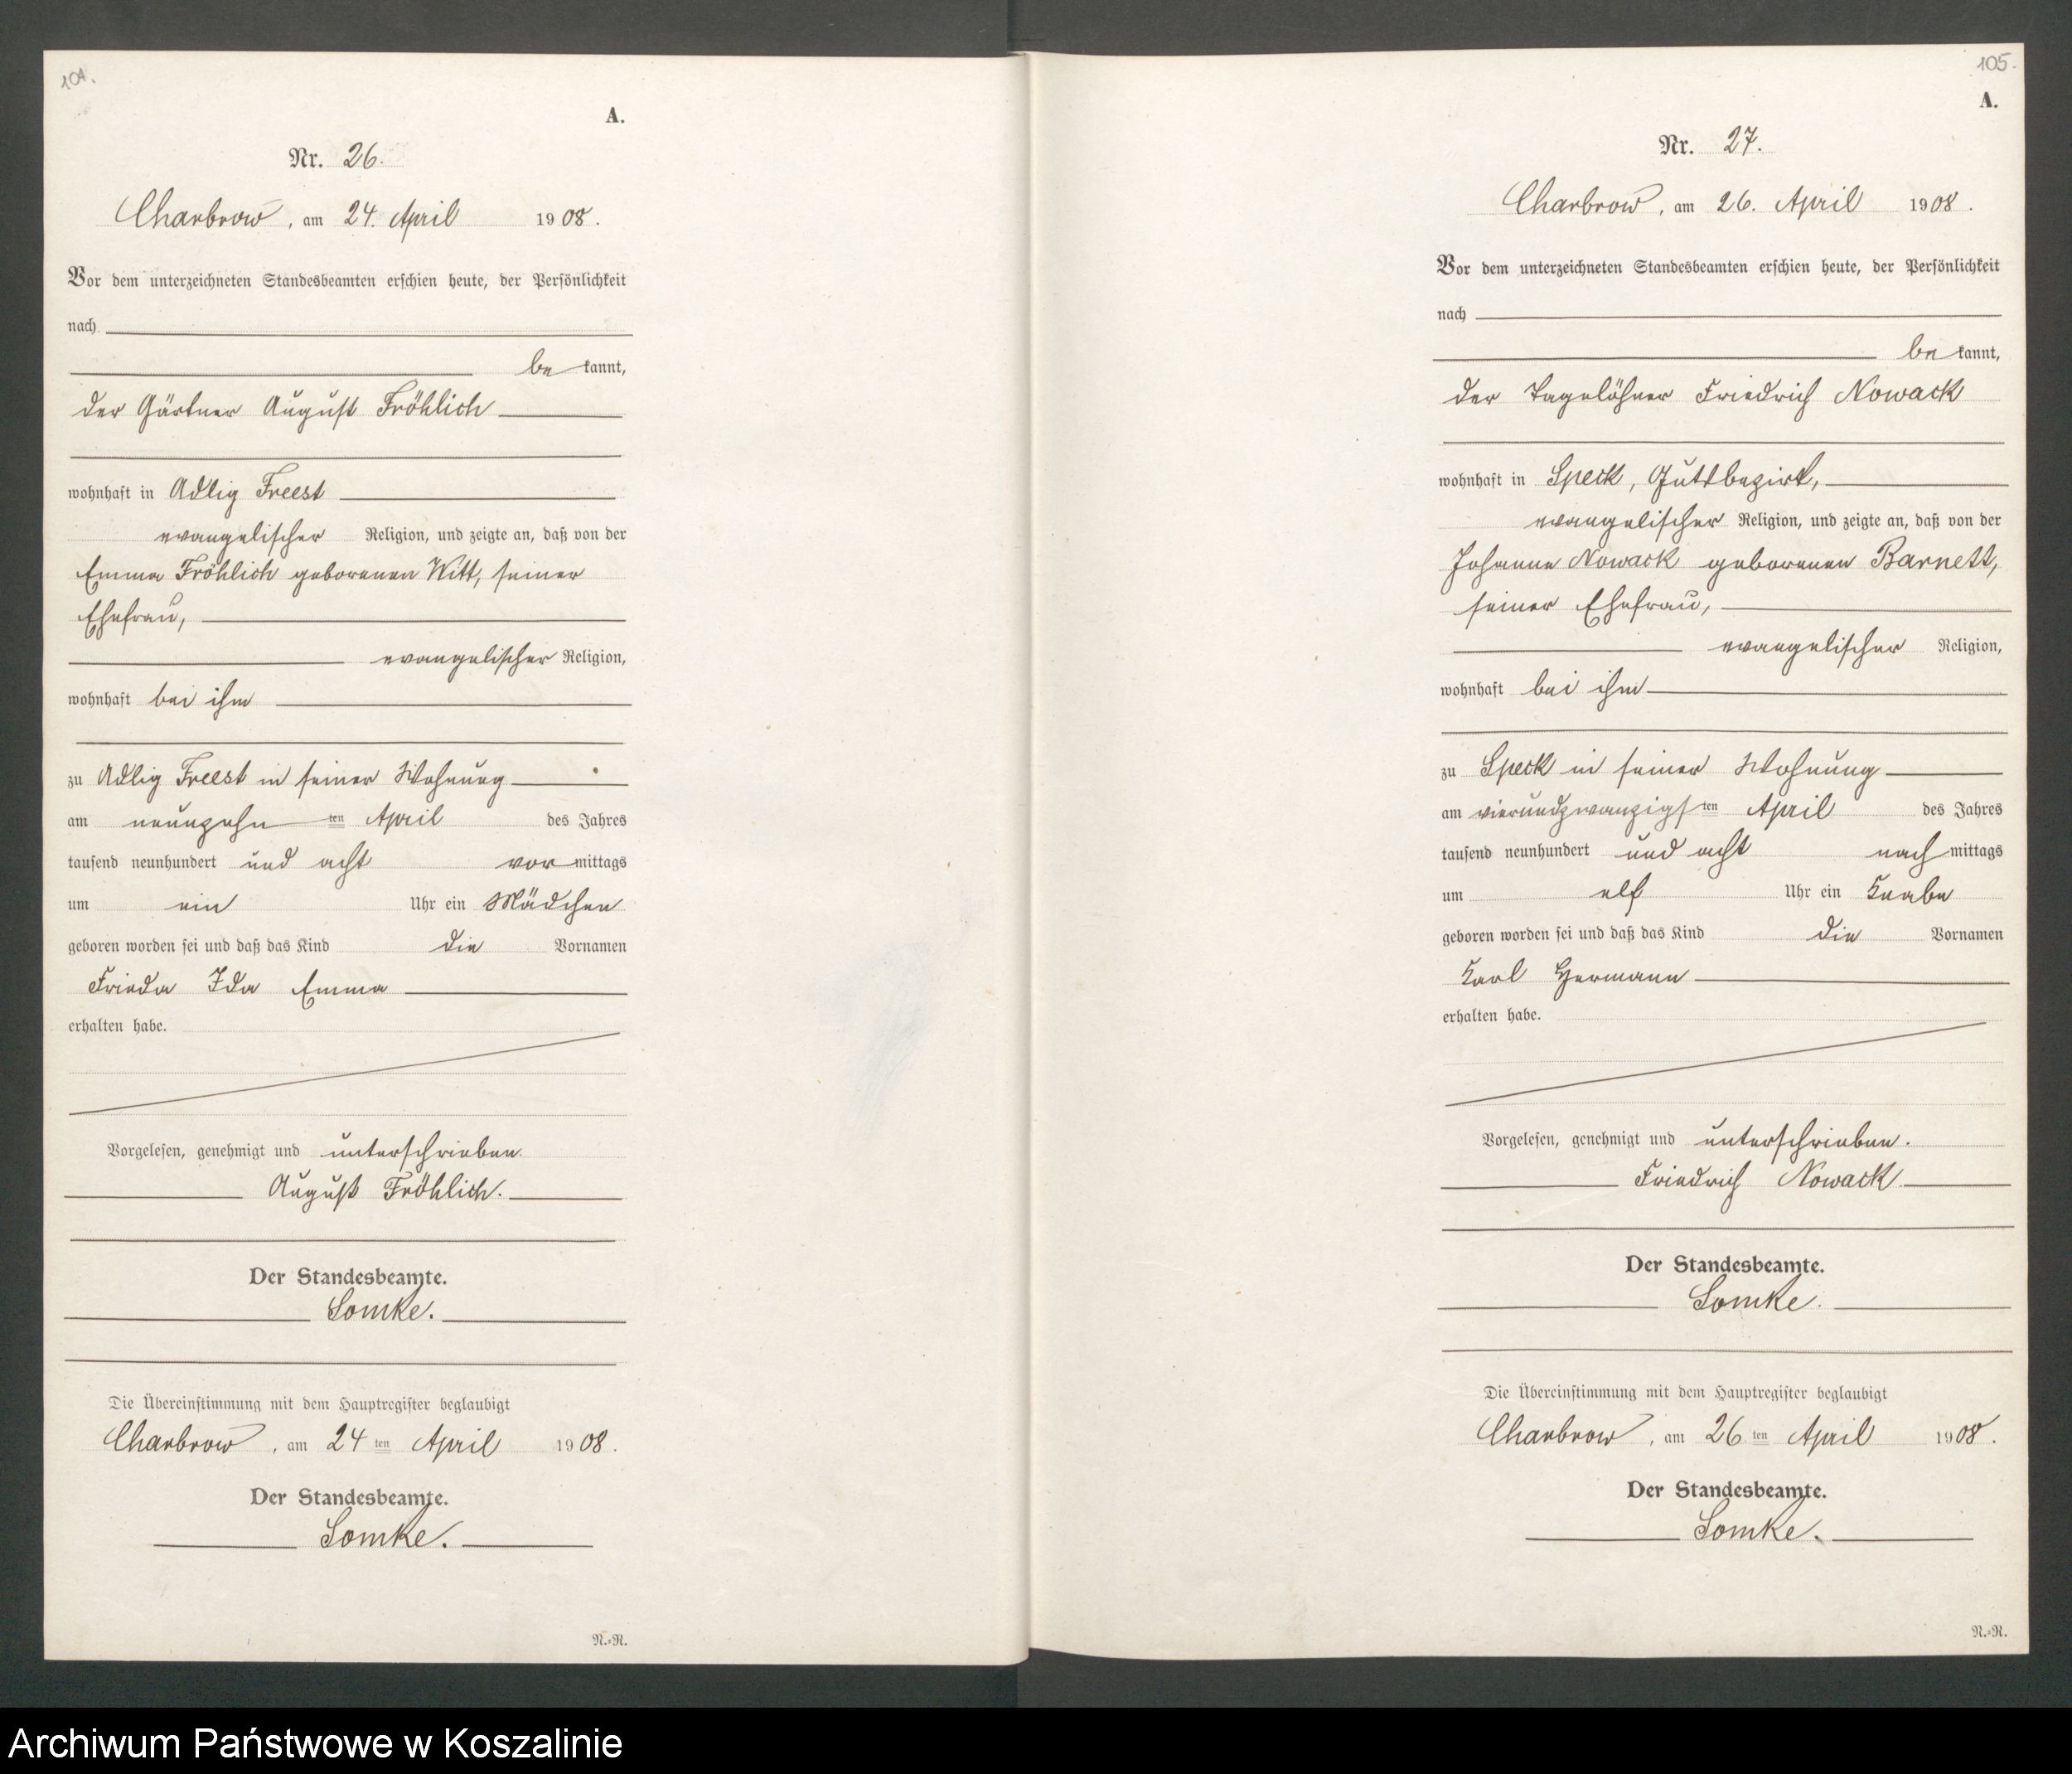 104.
A.
Nr. 26.
Charbrow, am 24. April 1908.
Vor dem unterzeichneten Standesbeamten erschien heute, der Persönlichkeit
nach
be kannt,
der Gärtner August Fröhlich
wohnhaft in Adlig Freest
evangelischer Religion, und zeigte an, daß von der
Emma Fröhlich geborenen Witt, seiner
Ehefrau,
evangelischer Religion,
wohnhaft bei ihm
zu Adlig Freest in seiner Wohnung
am neunzehn ten April des Jahres
tausend neunhundert und acht vor mittags
um ein Uhr ein Mädchen
geboren worden sei und daß das Kind die Vornamen
Frieda Ida Emma
erhalten habe.
Vorgelesen, genehmigt und unterschrieben.
August Fröhlich.
Der Standesbeamte.
Somke.
Die Übereinstimmung mit dem Hauptregister beglaubigt
Charbrow, am 24 ten April 1908.
Der Standesbeamte.
Somke.
N.=R.
105.
A.
Nr. 27.
Charbrow, am 26. April 1908.
Vor dem unterzeichneten Standesbeamten erschien heute, der Persönlichkeit
nach
be kannt,
der Tagelöhner Friedrich Nowack
wohnhaft in Speck, Gutsbezirk,
evangelischer Religion, und zeigte an, daß von der
Johanne Nowack geborenen Barnett,
seiner Ehefrau,
evangelischer Religion,
wohnhaft bei ihm
zu Speck in seiner Wohnung
am vierundzwanzigs ten April des Jahres
tausend neunhundert und acht nach mittags
um elf Uhr ein Knabe
geboren worden sei und daß das Kind die Vornamen
Karl Hermann
erhalten habe.
Vorgelesen, genehmigt und unterschrieben.
Friedrich Nowack
Der Standesbeamte.
Somke.
Die Übereinstimmung mit dem Hauptregister beglaubigt
Charbrow, am 26 ten April 1908.
Der Standesbeamte.
Somke.
N.=R.
Archiwum Państwowe w Koszalinie